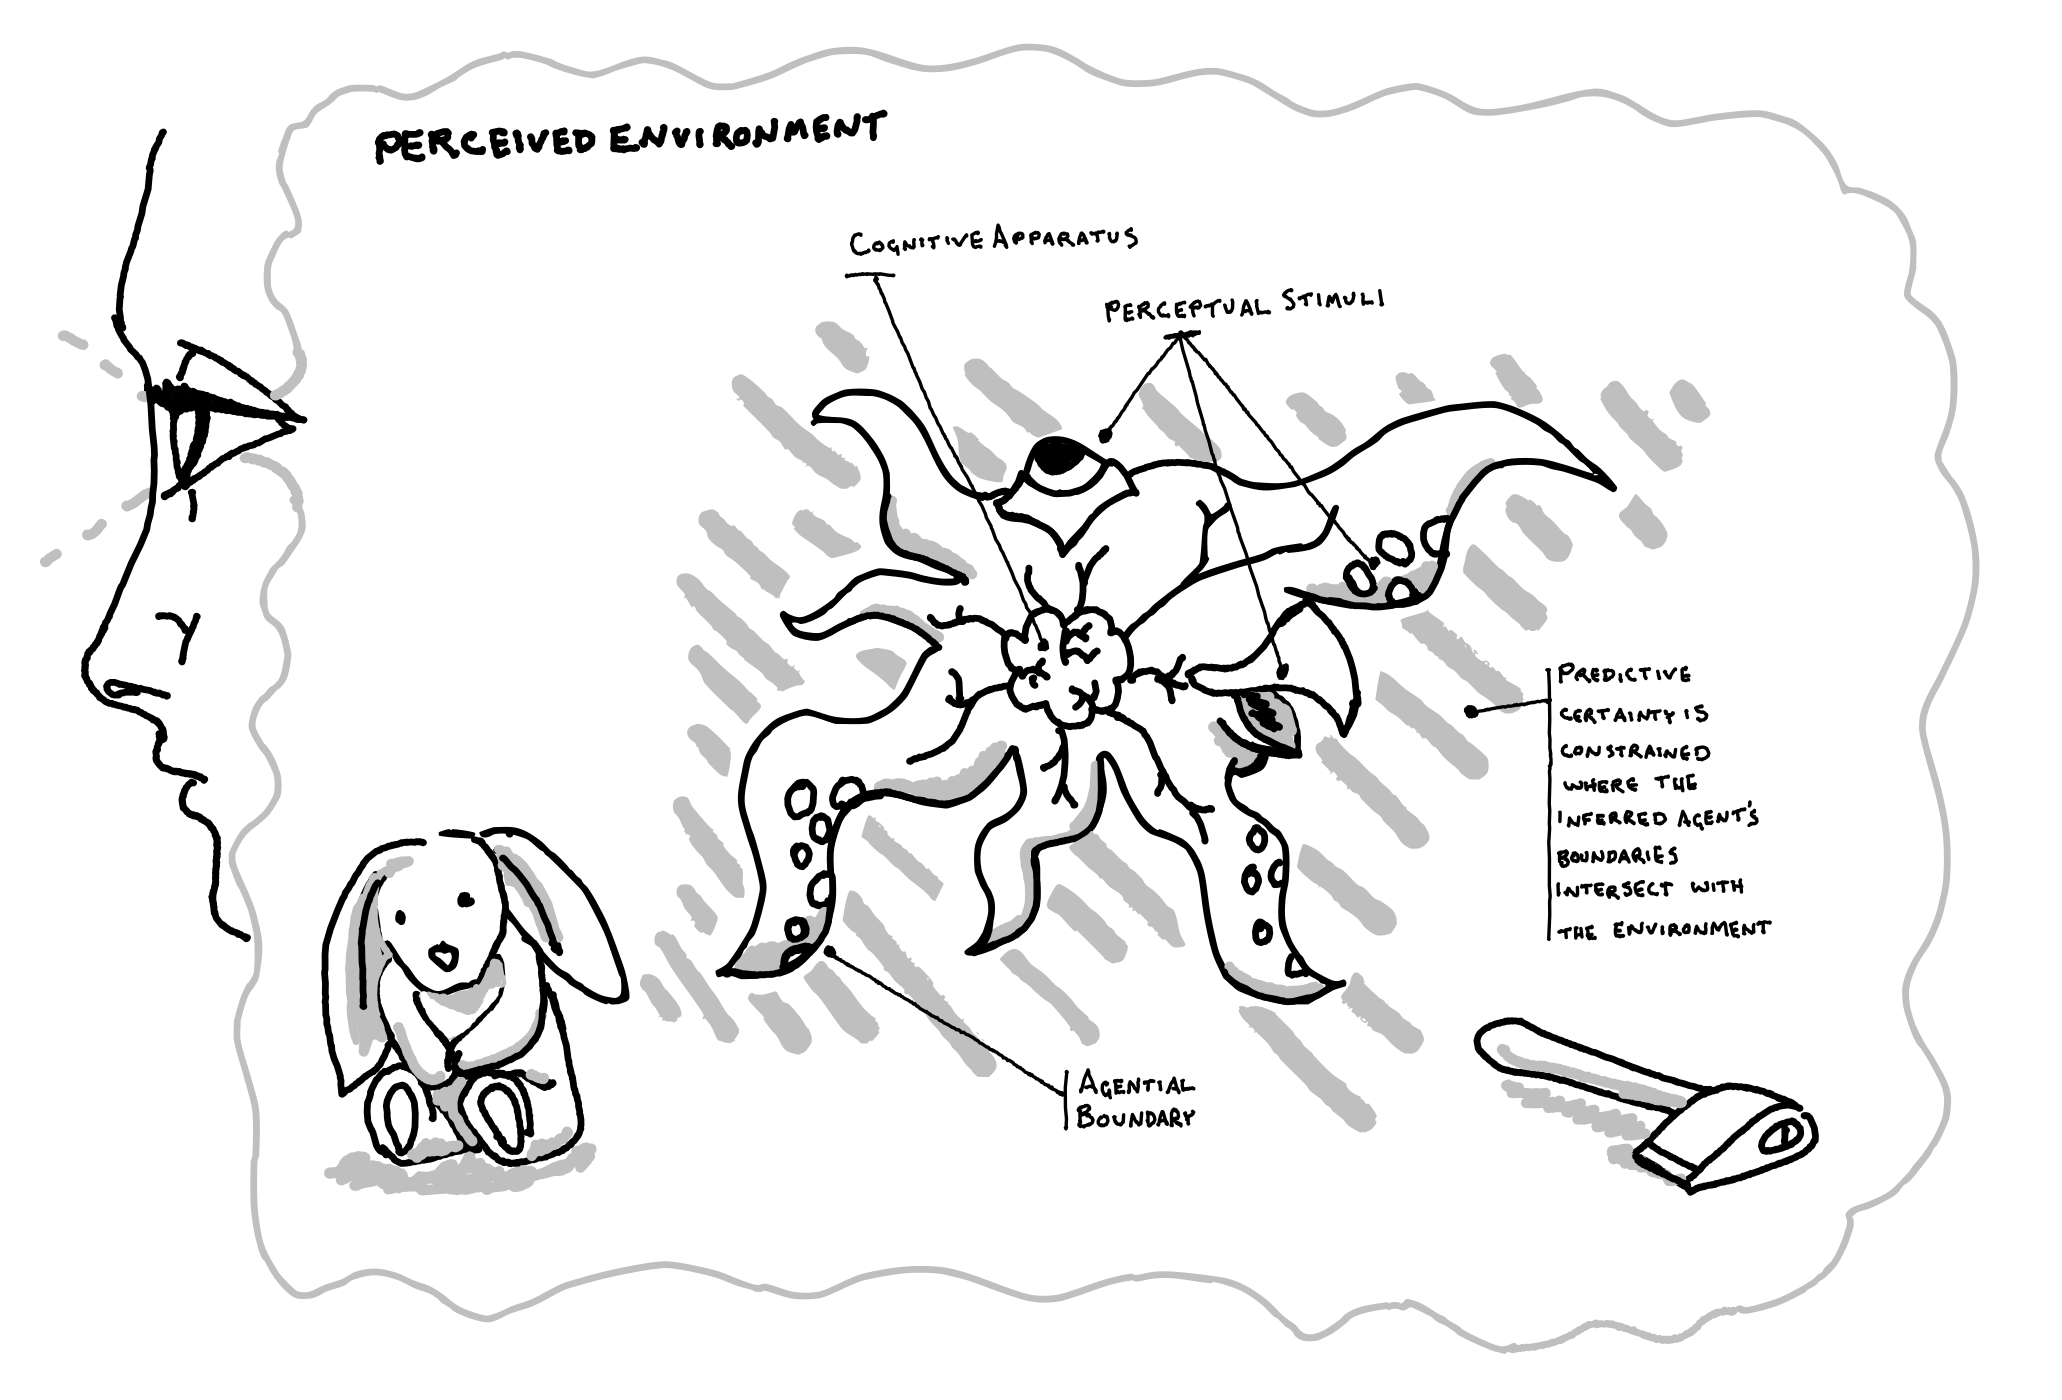 PERCEIVED ENVIRONMENT
COGNITIVE APPARATUS
PERCEPTUAL STIMULI
PREDICTIVE
CERTAINTY IS
CONSTRAINED
WHERE THE
INFERRED AGENT'S
BOUNDARIES
INTERSECT WITH
THE ENVIRONMENT
AGENTIAL
BOUNDARY